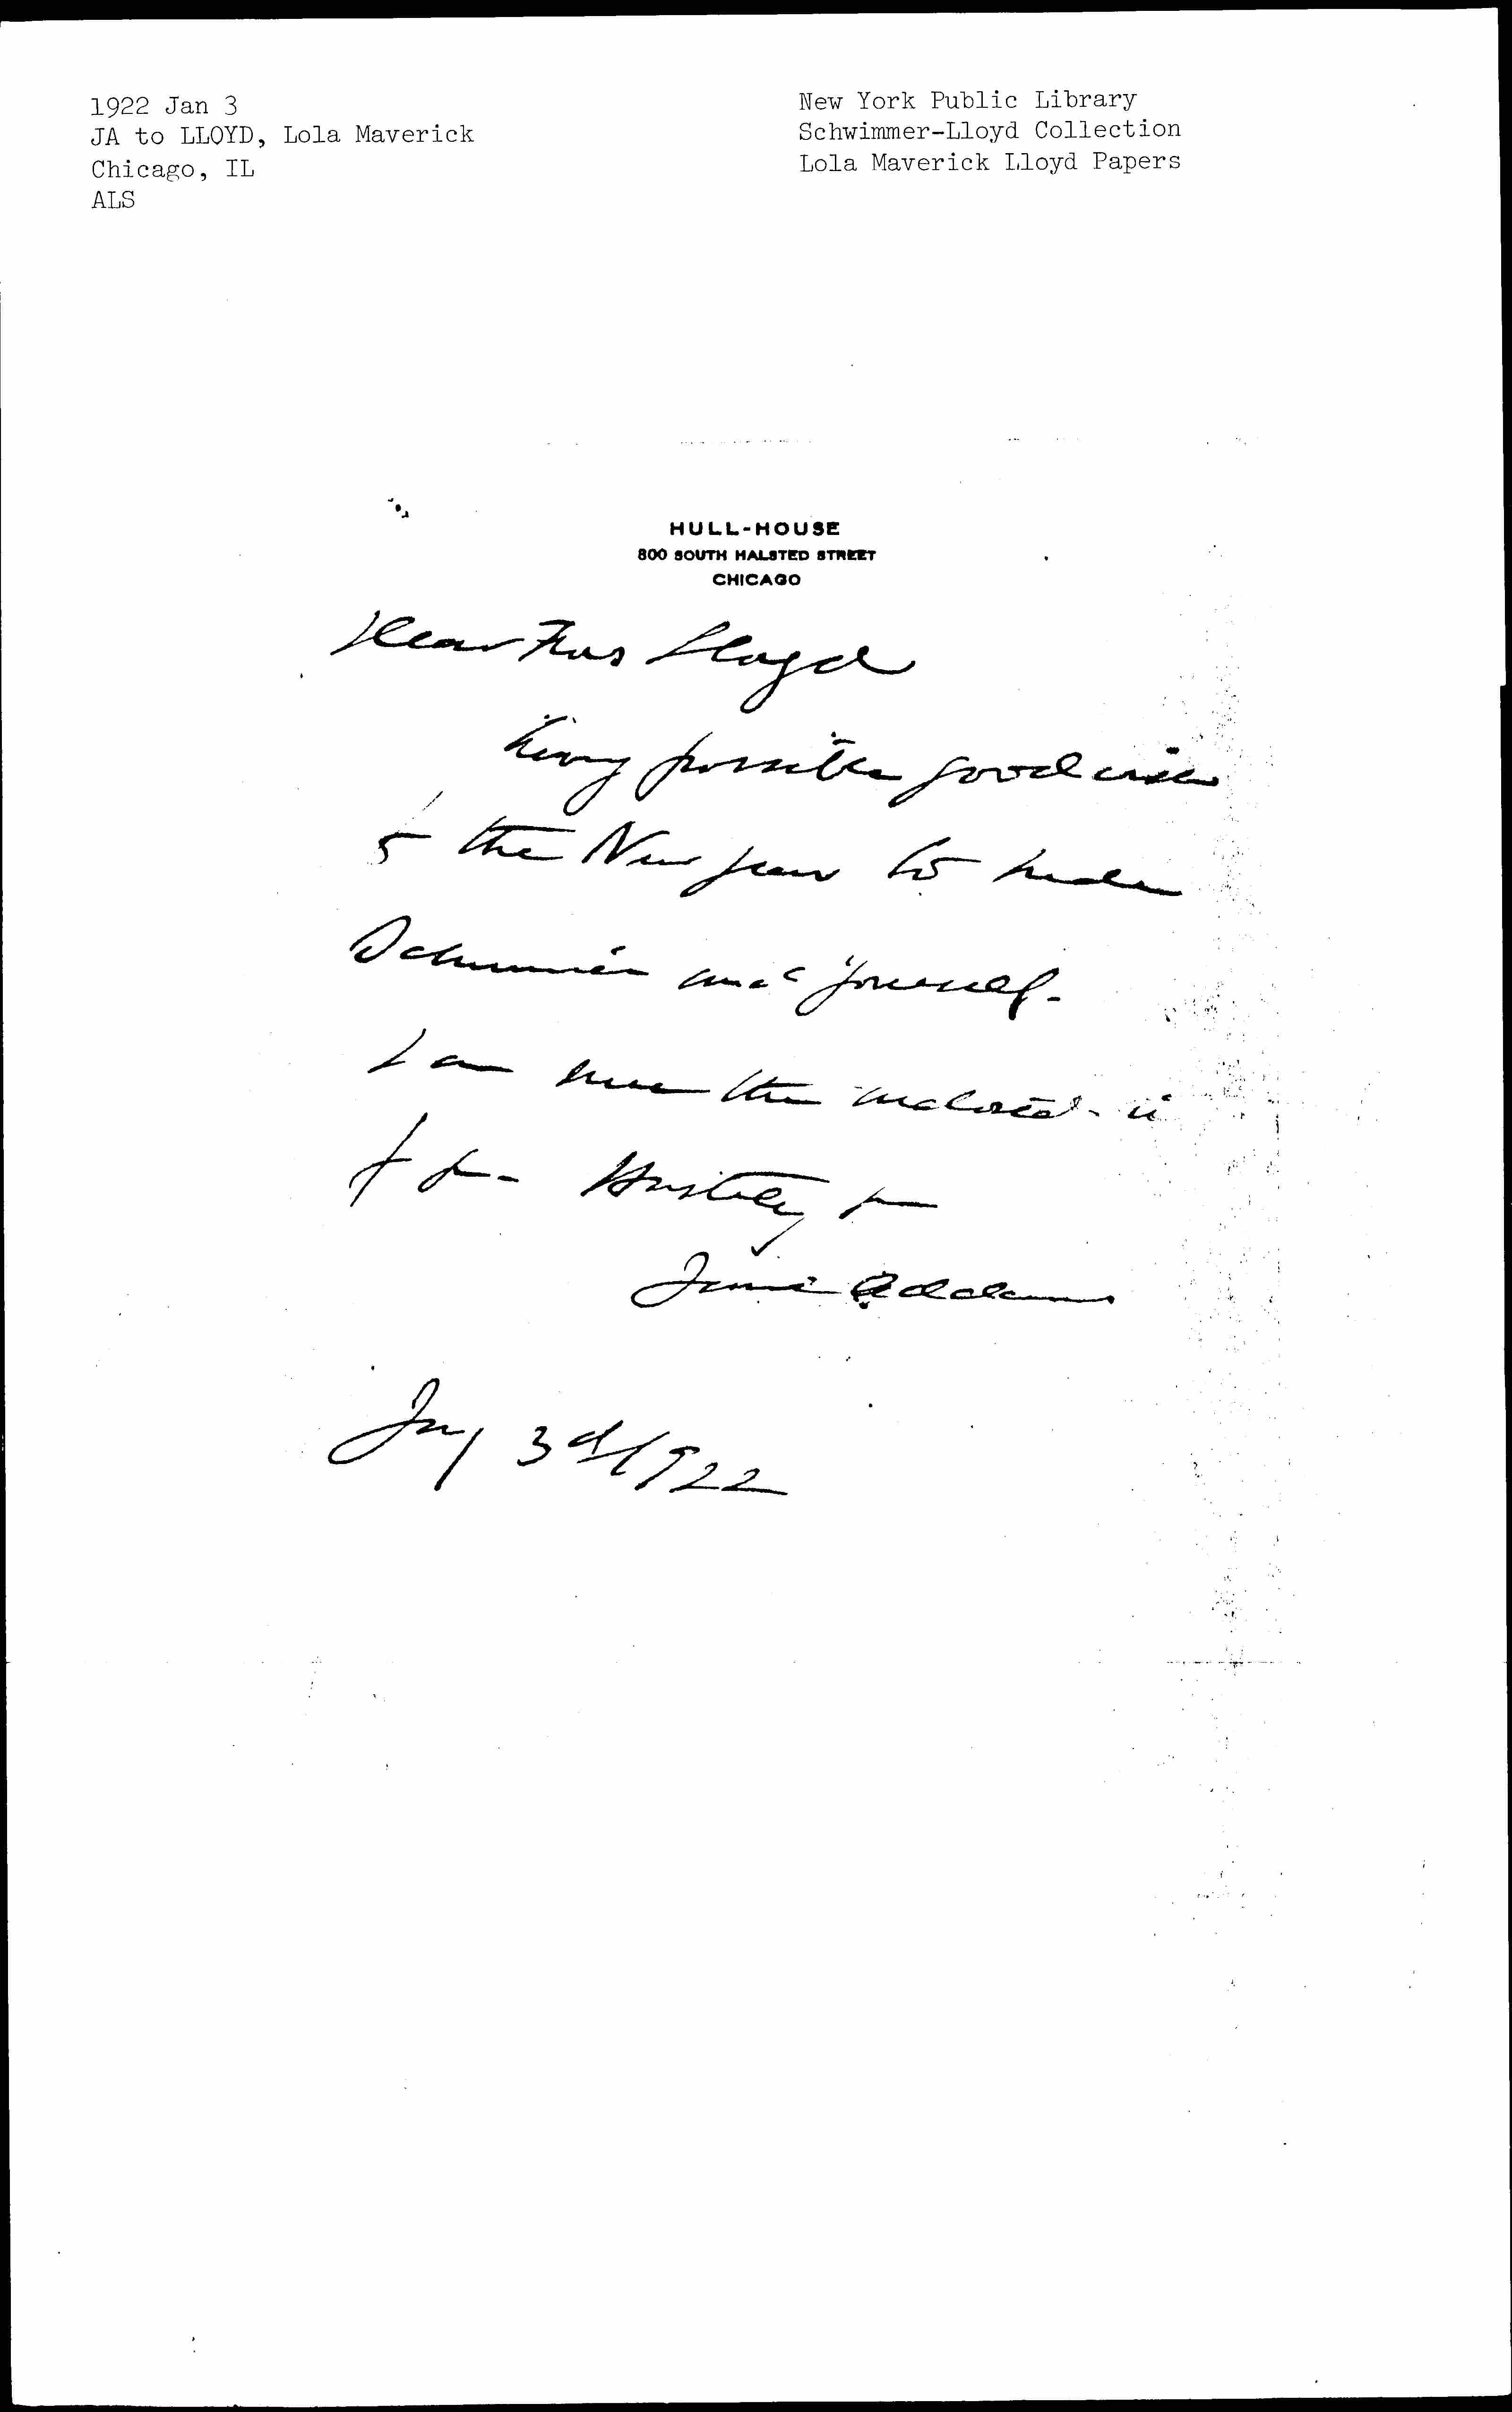 1922 Jan 3
JA to LLOYD, Lola Maverick
Chicago, IL
ALS
New York Public Library
Schwimmer-Lloyd Collection
Lola Maverick Lloyd Papers
HULL-HOUSE
800 SOUTH HALSTED STREET
CHICAGO
Dear Mrs Lloyd
Every possible good wish
the New Year to
Schwimmer and yourself.
I am sure the enclosed is
Hastily yrs
Jane Addams
Jny 3d/1922